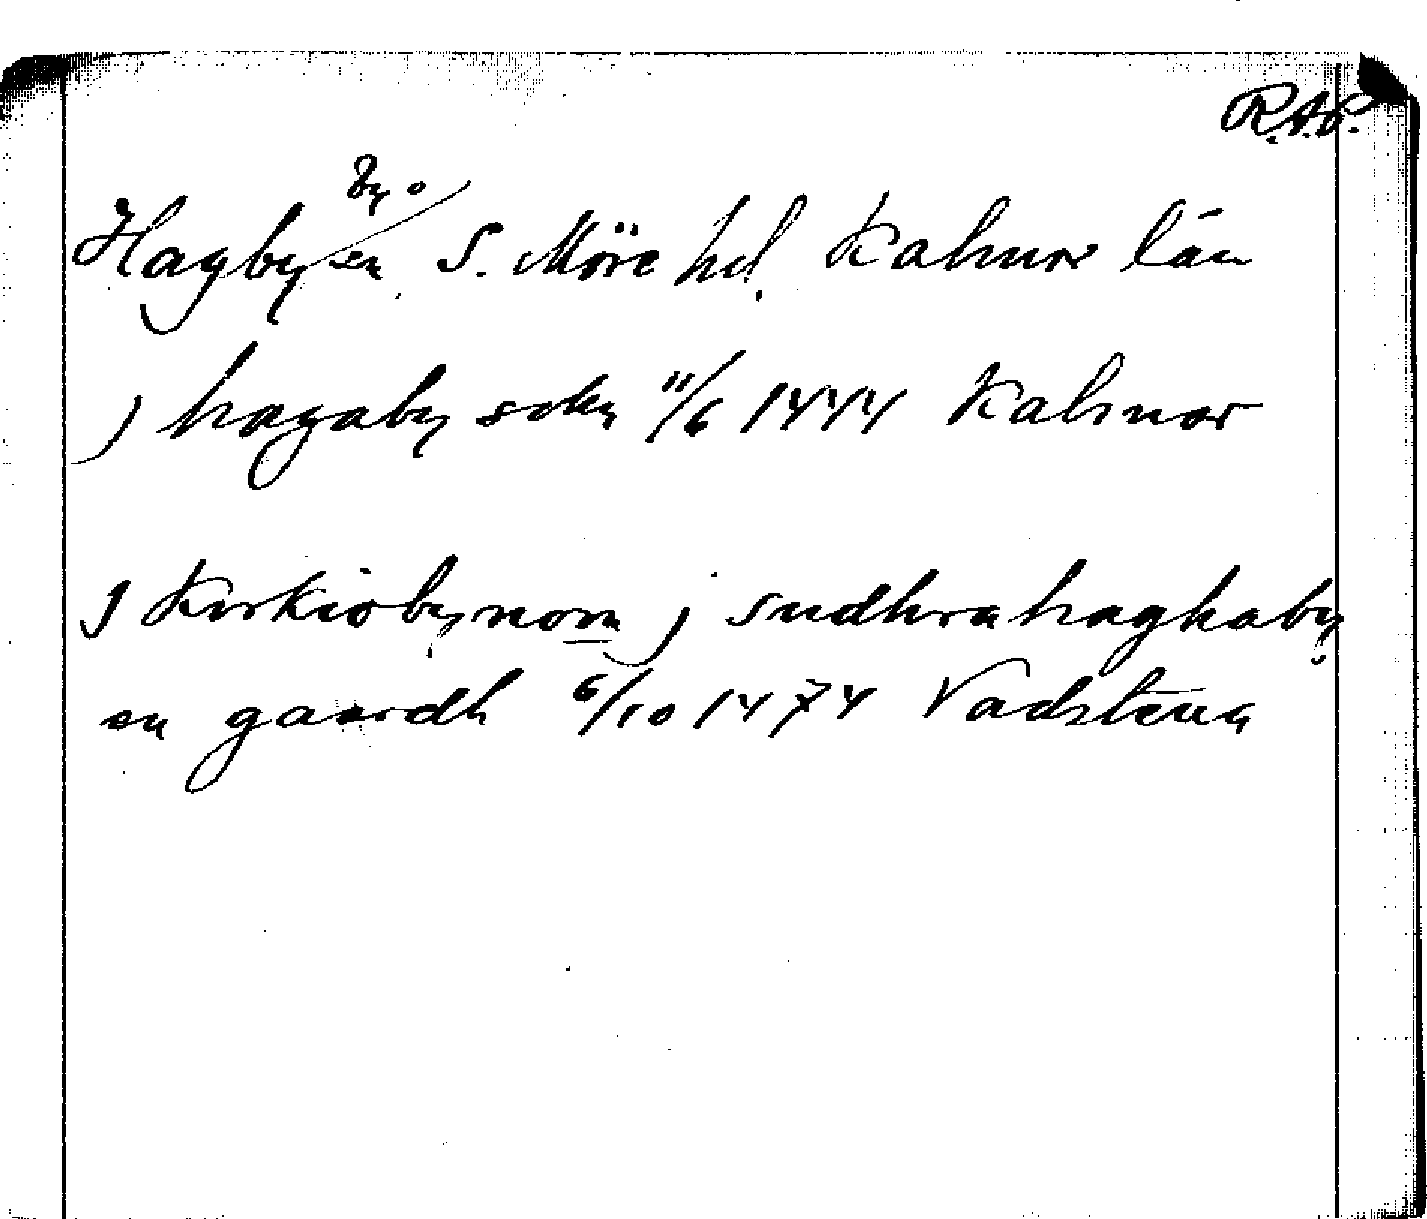 R.A.P.
by o
Hagby sn S. Möre hd. Kalmar län
j hagaby sokn 11/6 1444 Kalmar
J Kirkiobynom j sudhrahaghaby
en gaardh 6/10 1474 Vadstena